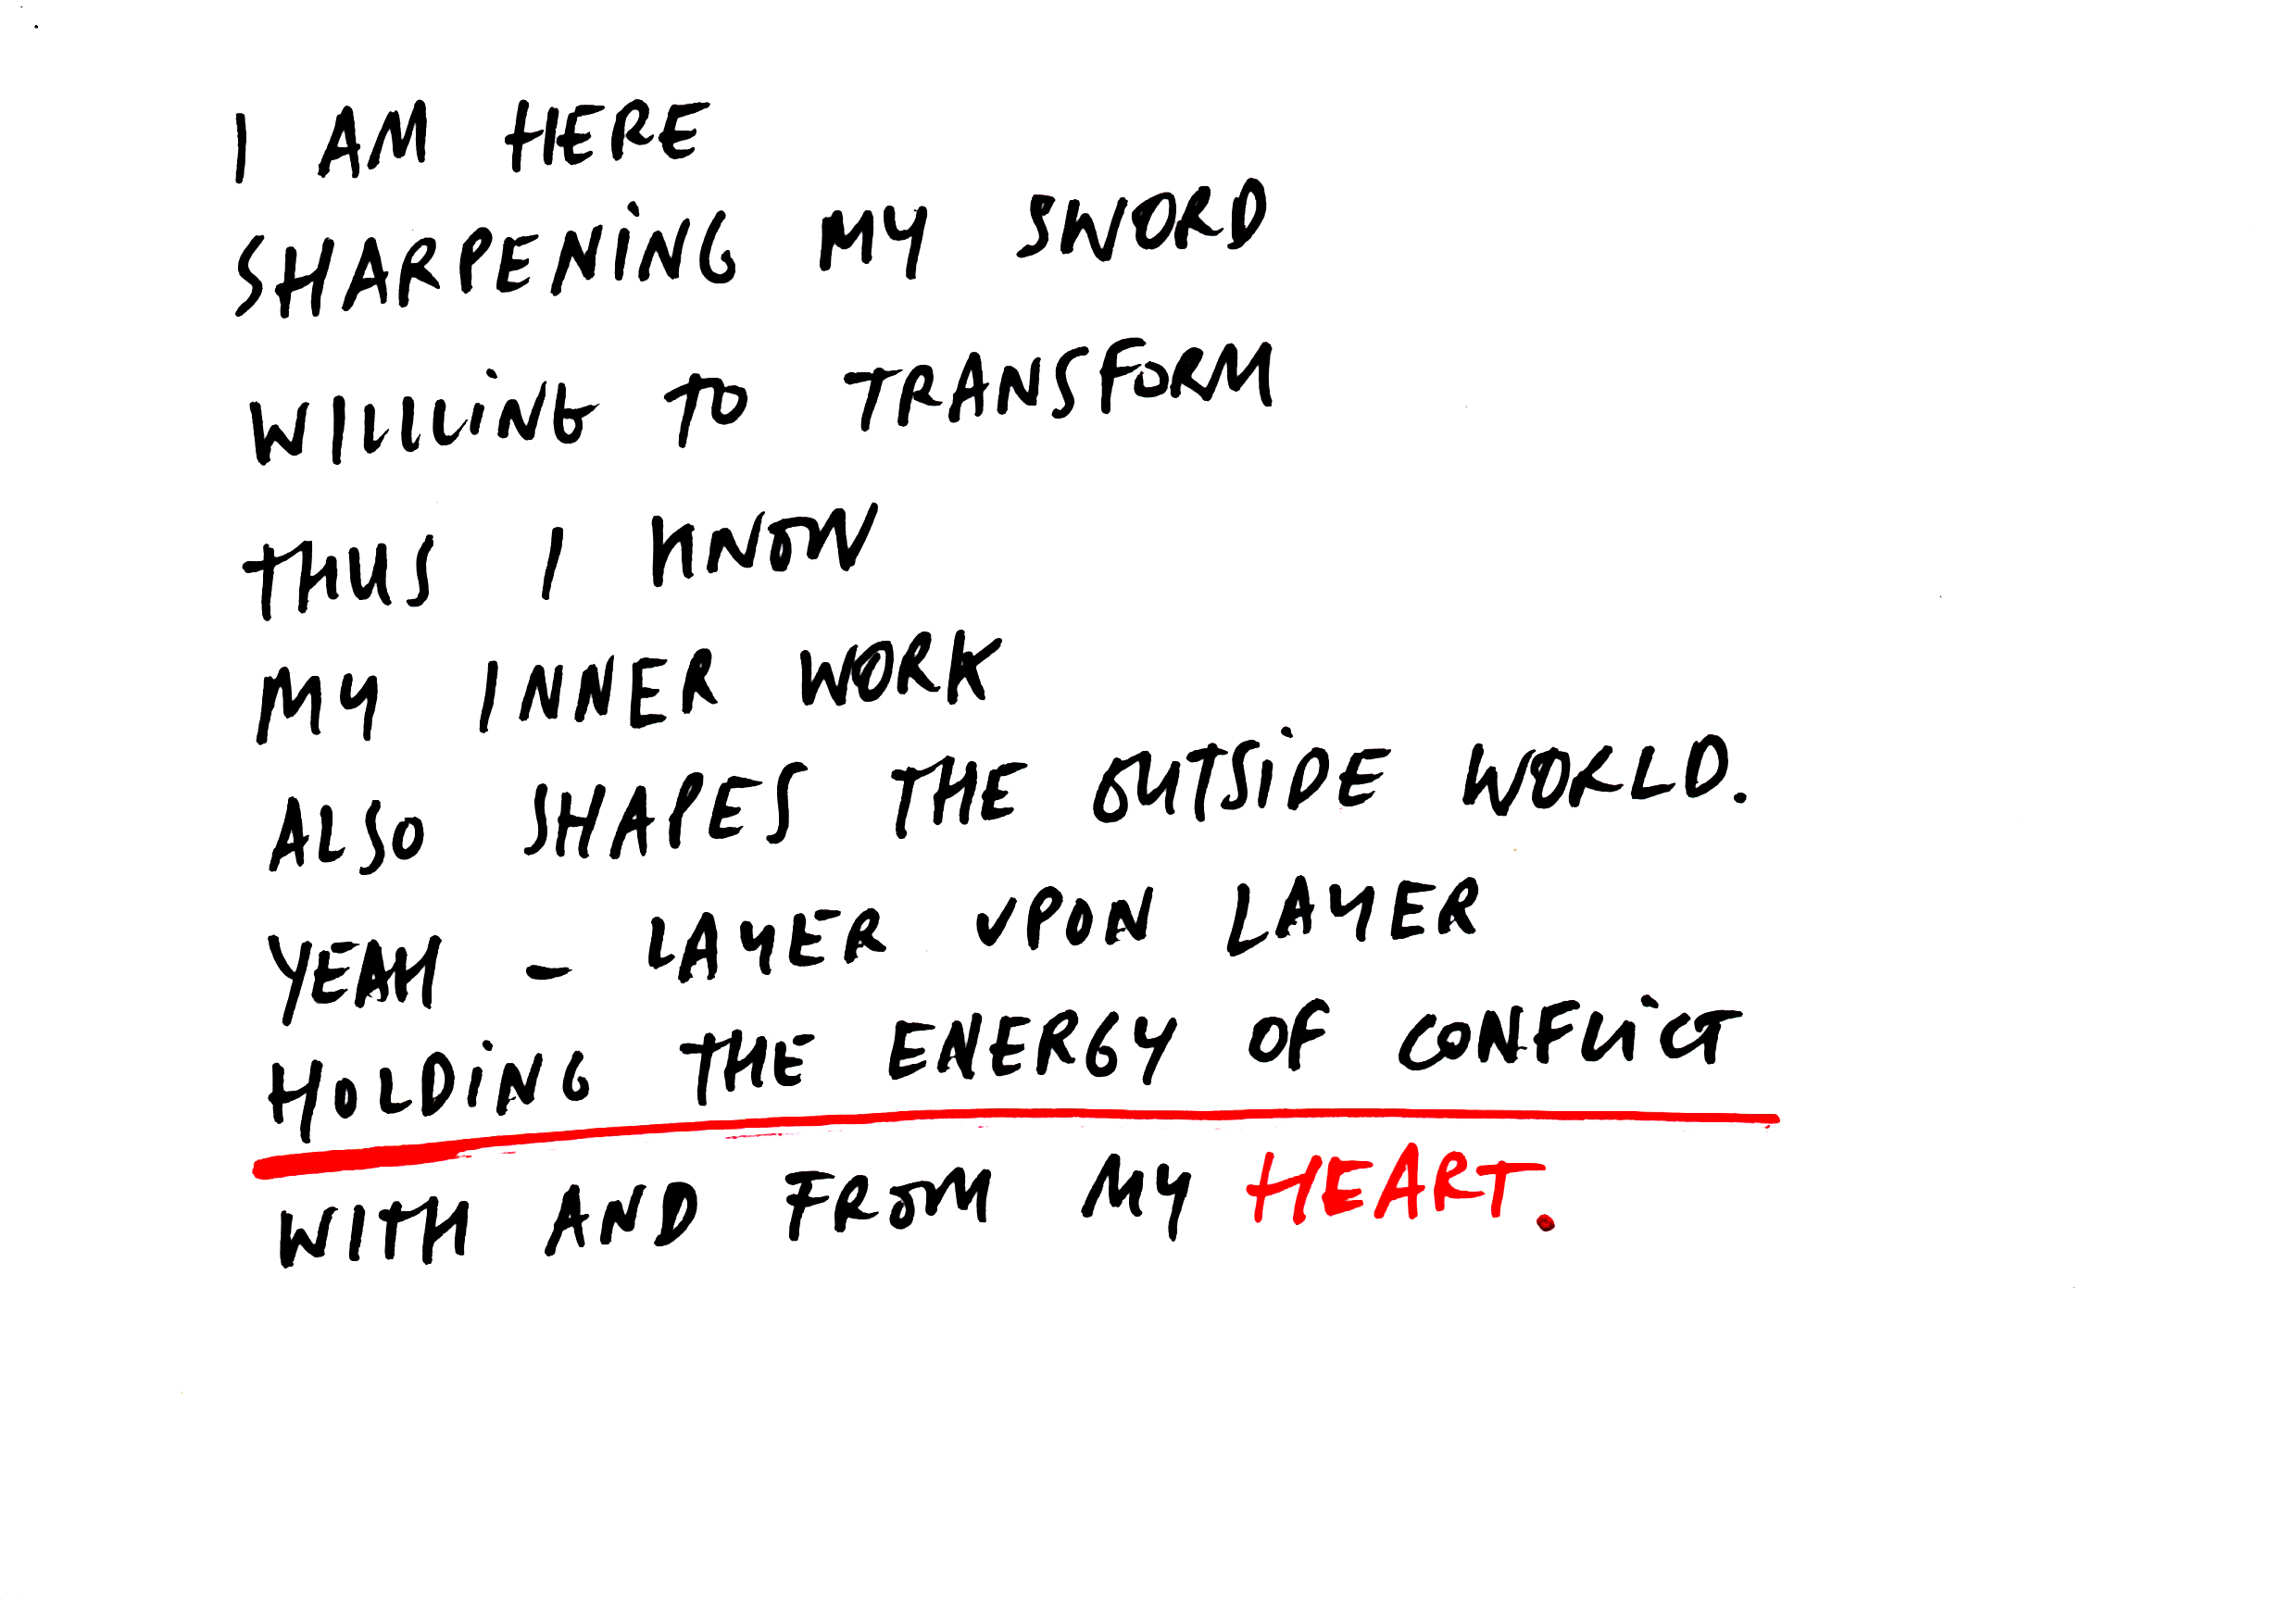 I AM HERE
SHARPENING MY SWORD
WILLING TO TRANSFORM
THUS I KNOW
MY INNER WORK
ALSO SHAPES THE OUTSIDE WORLD.
YEAH - LAYER UPON LAYER
HOLDING THE ENERGY OF CONFLICT
WITH AND FROM MY HEART.